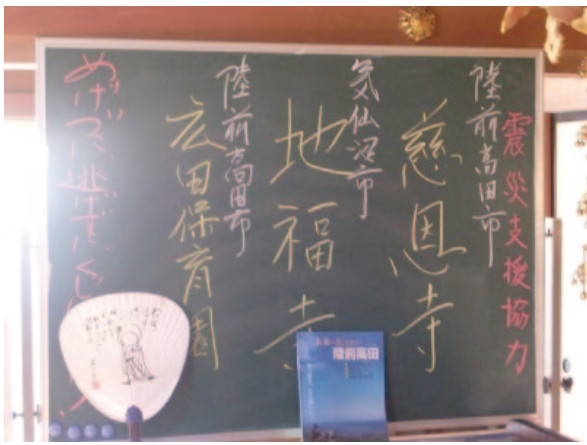 震災支援協力
陸前高田市
慈恩寺
気仙沼市
地福寺
陸前高田市
広田保育園
めげない逃げない
陸前高田